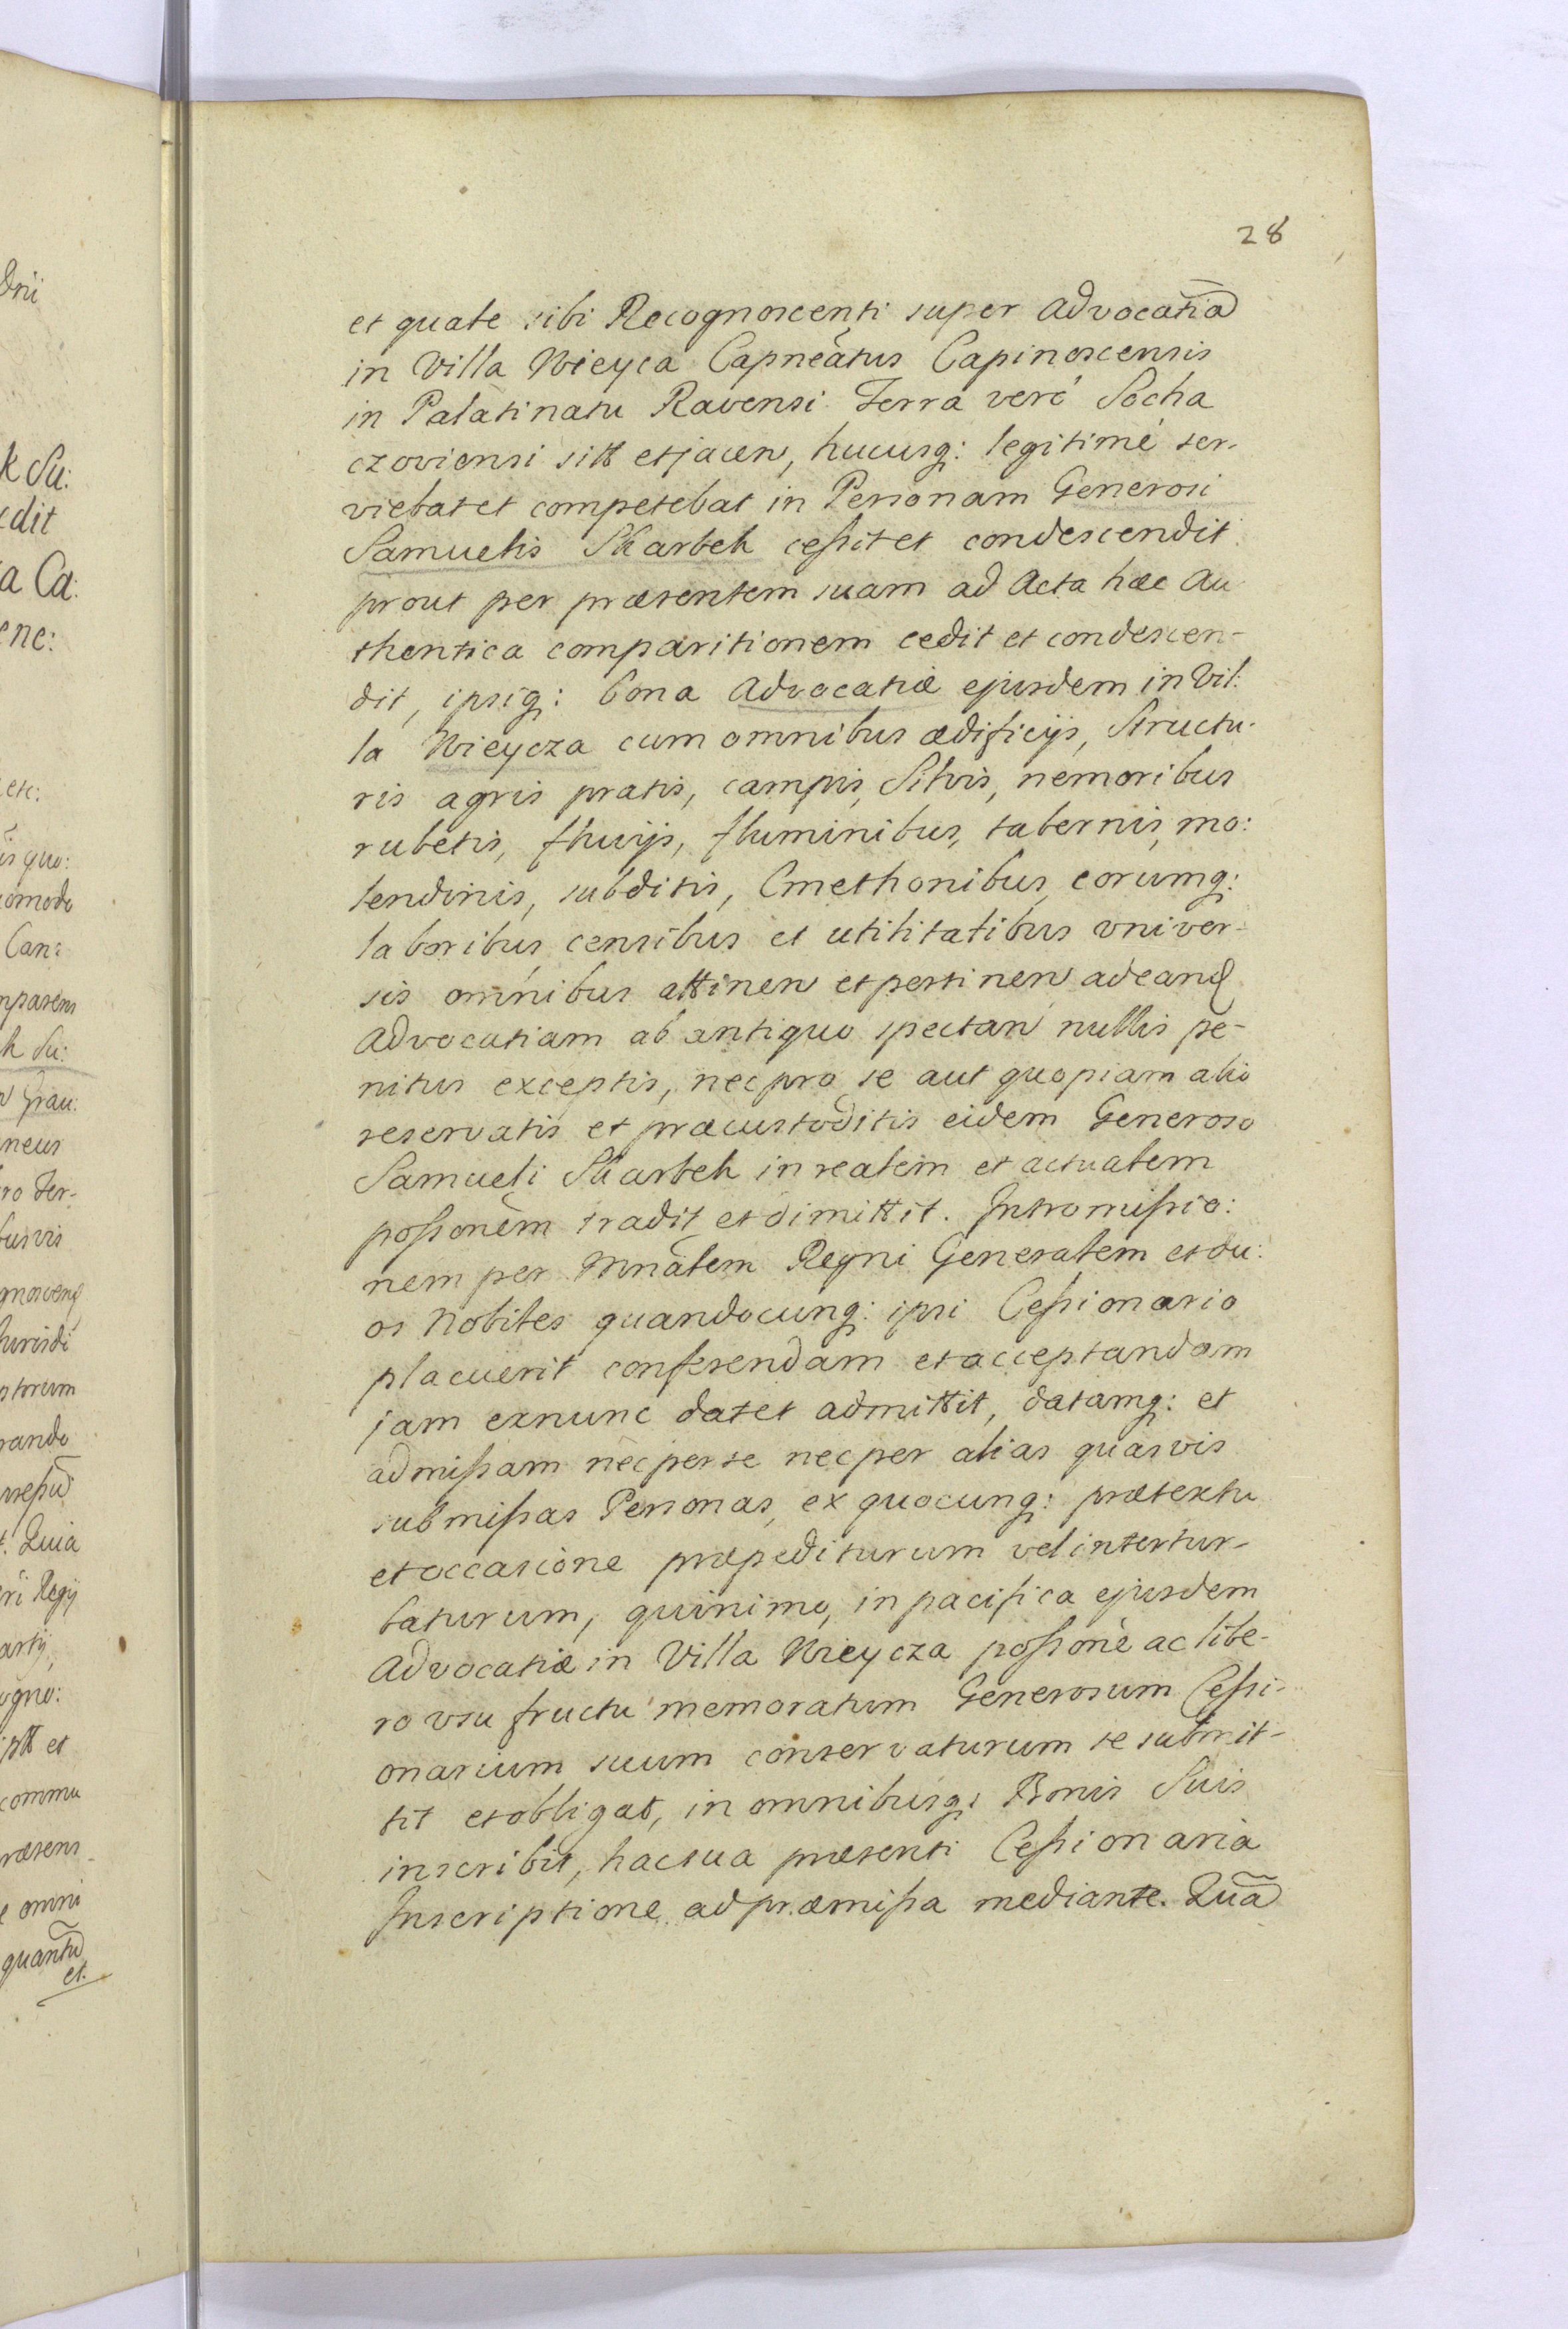 28
et quale sibi Recognoscenti super advocatia
in Villa Wieyca Capneatus Capinoscensis
in Palatinatu Ravensi Terra verò Socha
czoviensi sitt et jacen, hucusq: legitimè ser-
viebat et competebat in Personam Generosi
Samuelis Skarbek cessit et condescendit
prout per præsentem suam ad Acta hæc Au
thentica comparitionem cedit et condescen-
dit, ipsiq: bona advocatiæ ejusdem in Vil:
la Wieycza cum omnibus ædificijs, Structu-
ris agris pratis, campis, Silvis, nemoribus
rubetis, fluvijs, fluminibus, tabernis, mo:
lendinis, subditis, Cmethonibus, eorumq:
laboribus, censibus et utilitatibus vniver-
sis omnibus attinen et pertinen ad eand
advocatiam ab antiquo spectan nullis pe-
nitus exceptis, nec pro se aut quopiam alio
reservatis et præcustoditis eidem Generoso
Samueli Skarbek in realem et actualem
possonem tradit et dimittit. Intromissio:
nem per Mnalem Regni Generalem et du:
os Nobiles quandocunq: ipsi Cessionario
placuerit conferendam et acceptandam
jam exnunc dat et admittit, datamq: et
admissam nec per se nec per alias quasvis
submissas Personas, ex quocunq: prætextu
et occasione præpediturum vel intertur-
baturum, quinimo, in pacifica ejusdem
Advocatiæ in Villa Wieycza possone ac libe-
ro vsu fructu memoratum Generosum Cessi-
onarium suum conservaturum se submit-
tit et obligat, in omnibusq: Bonis Suis
inscribit, hac sua præsenti Cessionaria
Inscriptione ad præmissa mediante. Qua